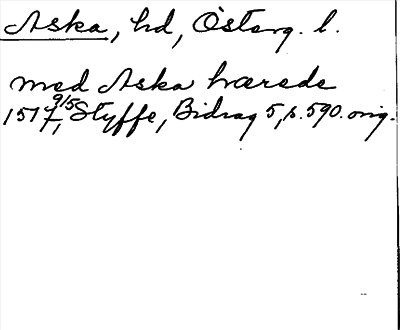 Aska, hd, Österg. l.
med Aska hærede
1517 9/5, Styffe, Bidrag 5, s. 590. orig.